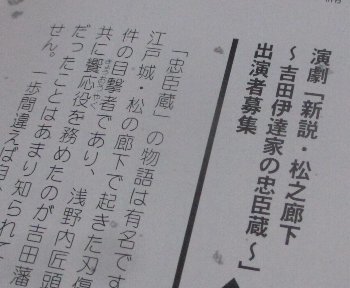 演劇「新説・松之廊下
～吉田伊達家の忠臣蔵～」
出演者募集
「忠臣蔵」の物語は有名です
江戸城・松の廊下で起きた刃傷
件の目撃者であり、浅野内匠頭
共に饗応役を務めたのが吉田藩
だったことはあまり知られて
せん。
一歩間違えば自